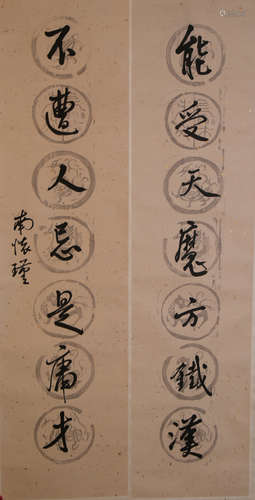 能受天魔方鐵漢
不遭人忌是庸才
南懷瑾